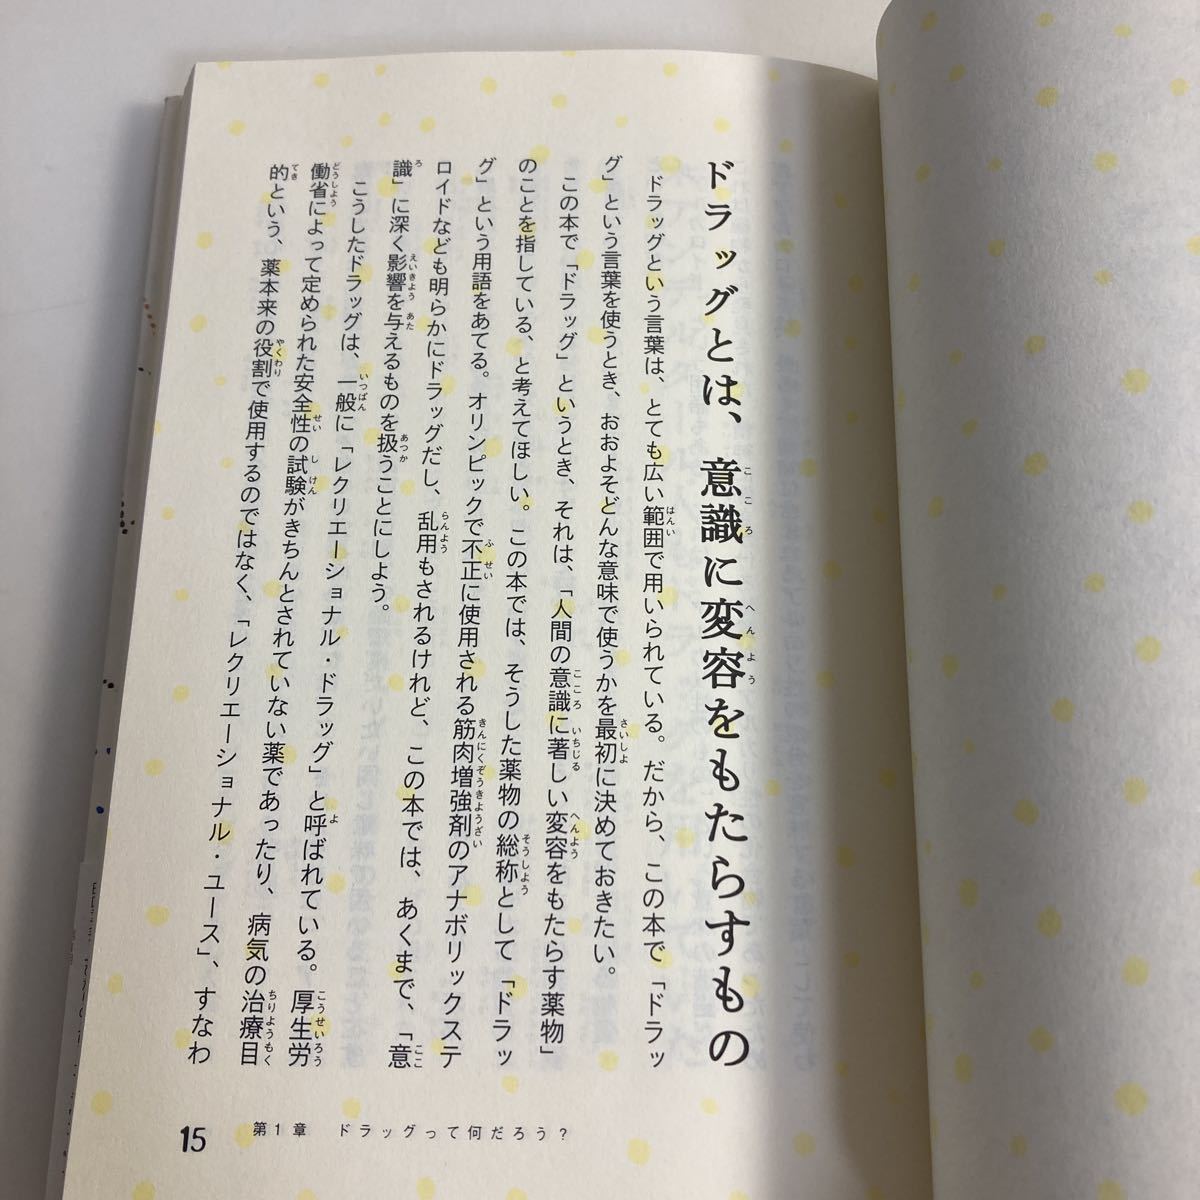 ドラッグとは、意識に変容をもたらすもの
ドラッグという言葉は、とても広い範囲で用いられている。だから、この本で「ドラッ
グ」という言葉を使うとき、おおよそどんな意味で使うかを最初に決めておきたい。
この本で「ドラッグ」というとき、それは、「人間の意識に著しい変容をもたらす薬物」
のことを指している、と考えてほしい。この本では、そうした薬物の総称として「ドラッ
グ」という用語をあてる。オリンピックで不正に使用される筋肉増強剤のアナボリックステ
ロイドなども明らかにドラッグだし、乱用もされるけれど、この本では、あくまで、「意
識」に深く影響を与えるものを扱うことにしよう。
こうしたドラッグは、一般に「レクリエーショナル・ドラッグ」と呼ばれている。厚生労
働省によって定められた安全性の試験がきちんとされていない薬であったり、病気の治療目
的という、薬本来の役割で使用するのではなく、「レクリエーショナル・ユース」、すなわ
15 第1章 ドラッグって何だろう？